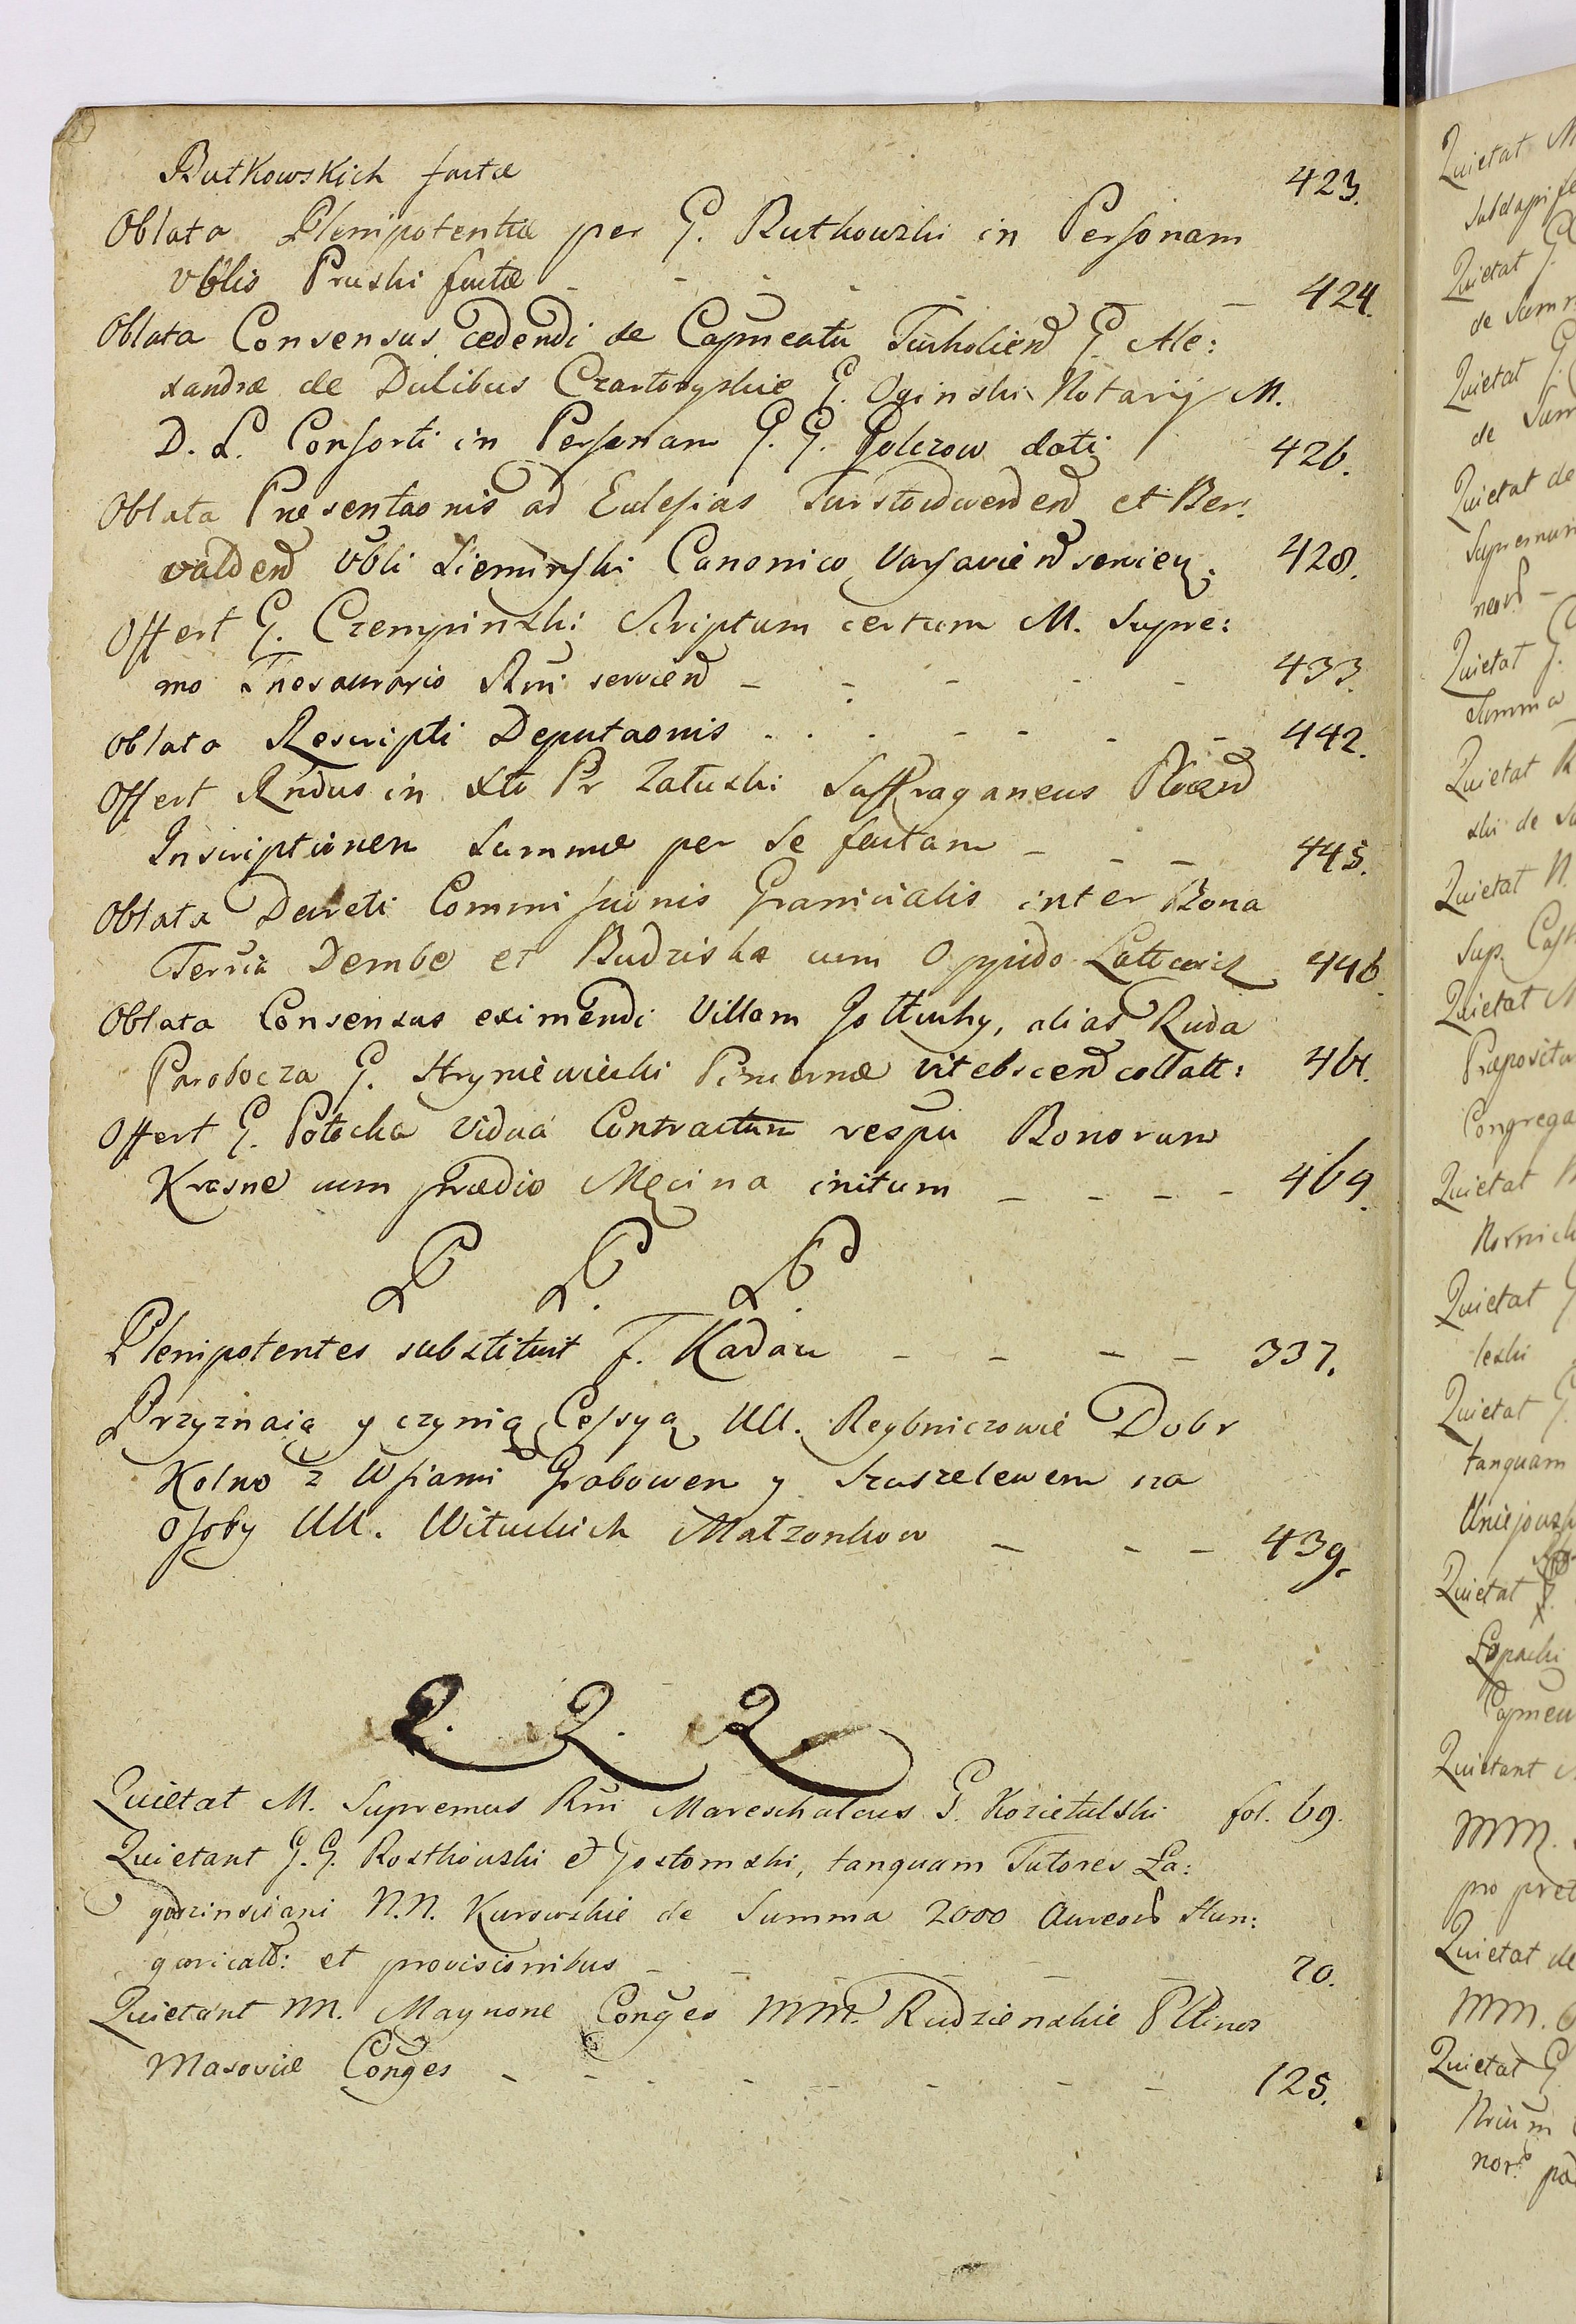 Butkowskich factæ 423.
Oblata Plenipotentiæ per G. Rutkowski in Personam
Vblis Pruski factæ - - - - - 424.
Oblata Consensus cedendi de Capneatu Tucholien G. Ale:
xandræ de Ducibus Czartoryskie G. Oginski Notarij M.
D. L. Consorti in Personam G. G. Golczow dati 426.
Oblata Præsentaonis ad Eclesias et Ber:
valden Vbli Lieminski Canonico Varsavien servien: 428.
Offert G. Czempinski Scriptum certum M. Supre:
mo Thesaurario Rni servien - - - - - 433.
Oblata Rescripti Deputaonis . . . - - - - 442.
Offert Rndus in Xto Pr Załuski Suffraganeus Plocen
Inscriptionem Summæ per Se factam - - - 445.
Oblata Decreti Commissionis Granicialis inter Bona
Terria Dembe et Budziska cum Oppido Latowicz 446.
Oblata Consensus eximendi Villam Gołłuchy, alias Ruda
Parobocza G. Hryniewiecki Pincernæ vitebscen collatt: 461.
Offert G. Potocka Vidua Contractum respu Bonorum
Krasne cum prædio Męcina initum - - - - 469.
P P. P.
Plenipotentes substituit F. Kadau - - - - 337.
Przyznaią y czynią Cessyą UU. Reybniczowie Dobr
Kolno z Wsiami Grabowem y Szuszelewem na
osoby UU. Wituckich Małzonkow - - - 439.
Q. Q. Q
Quietat M. Supremus Rni Mareschalcus G. Kozietulski fol. 69.
Quietant G. G. Rostkowski et Gostomski, tanquam Tutores La:
godzinsciani N. N. Kurowskie de Summa 2000 Aureor Hun:
garicall: et provisionibus - - - - - 70.
Quietant MM. Magnone Conges MM. Rudzienskie Pllinos
Masoviæ Conges - - - - - - - - 125.
Quietat M
Quietat G.
de Sum
Quietat G.
de Sum
Quietat de
Quietat G.
Summa
Quietat R
ski de Su
Quietat N.
Sup. Cas
Quietat M
Præpositu
Congrega
Quietat
Quietat G
leski
Quietat G.
tanquam
Uniejowsk
Quietat
Łopacki
Capneu
Quietant
MM.
pro pret
Quietat de
MM.
Quietat G